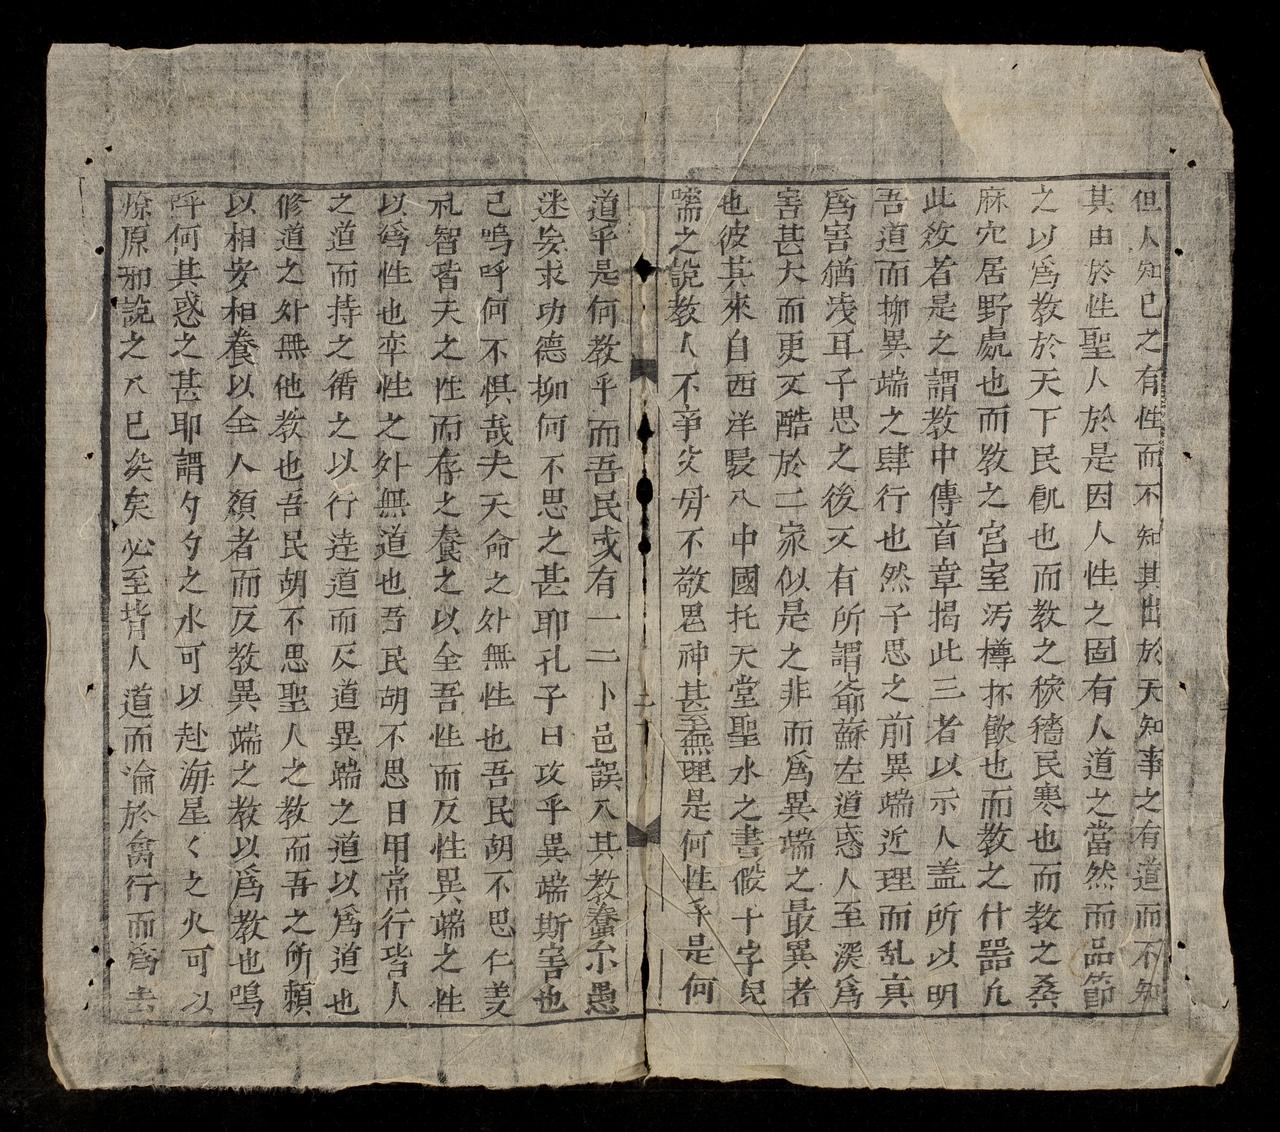 但人知己之有性而不知其出於天知事之有道而不知
其由於性聖人於是因人性之固有人道之當然而品節
之以爲教於天下民飢也而教之稼穡民寒也而教之桑
麻穴居野處也而教之宮室汚樽抔飲也而教之什器凡
此教者是之謂教中傳首章揭此三者以示人盖所以明
吾道而揶異端之肆行也然子思之前異端近理而乱真
爲害猶浅耳子思之後又有所謂爺蘇左道惑人至深爲
害甚大而更又酷於二家似是之非而爲異端之最異者
也彼其來自西洋駸入中國托天堂聖水之書假十字兒
喘之説教人不爭父母不敬思神甚至無理是何性乎是何
二
道乎是何教乎而吾民或有一二卜邑誤入其教蠢尔愚
迷妄求功德抑何不思之甚耶孔子曰攻乎異端斯害也
己嗚呼何不惧哉夫天命之外無性也吾民胡不思仁義
礼智皆天之性而存之養之以全吾性而反性異端之性
以爲性也卒性之外無道也吾民胡不思日用常行皆人
之道而持之循之以行達道而反道異端之道以爲道也
修道之外無他教也吾民胡不思聖人之教而吾之所頼
以相安相養以全人類者而反教異端之教以爲教也嗚
呼何其惑之甚耶謂勺勺之水可以赴海星〻之火可以
燎原邪説之入已矣矣必至背人道而淪於禽行而爲